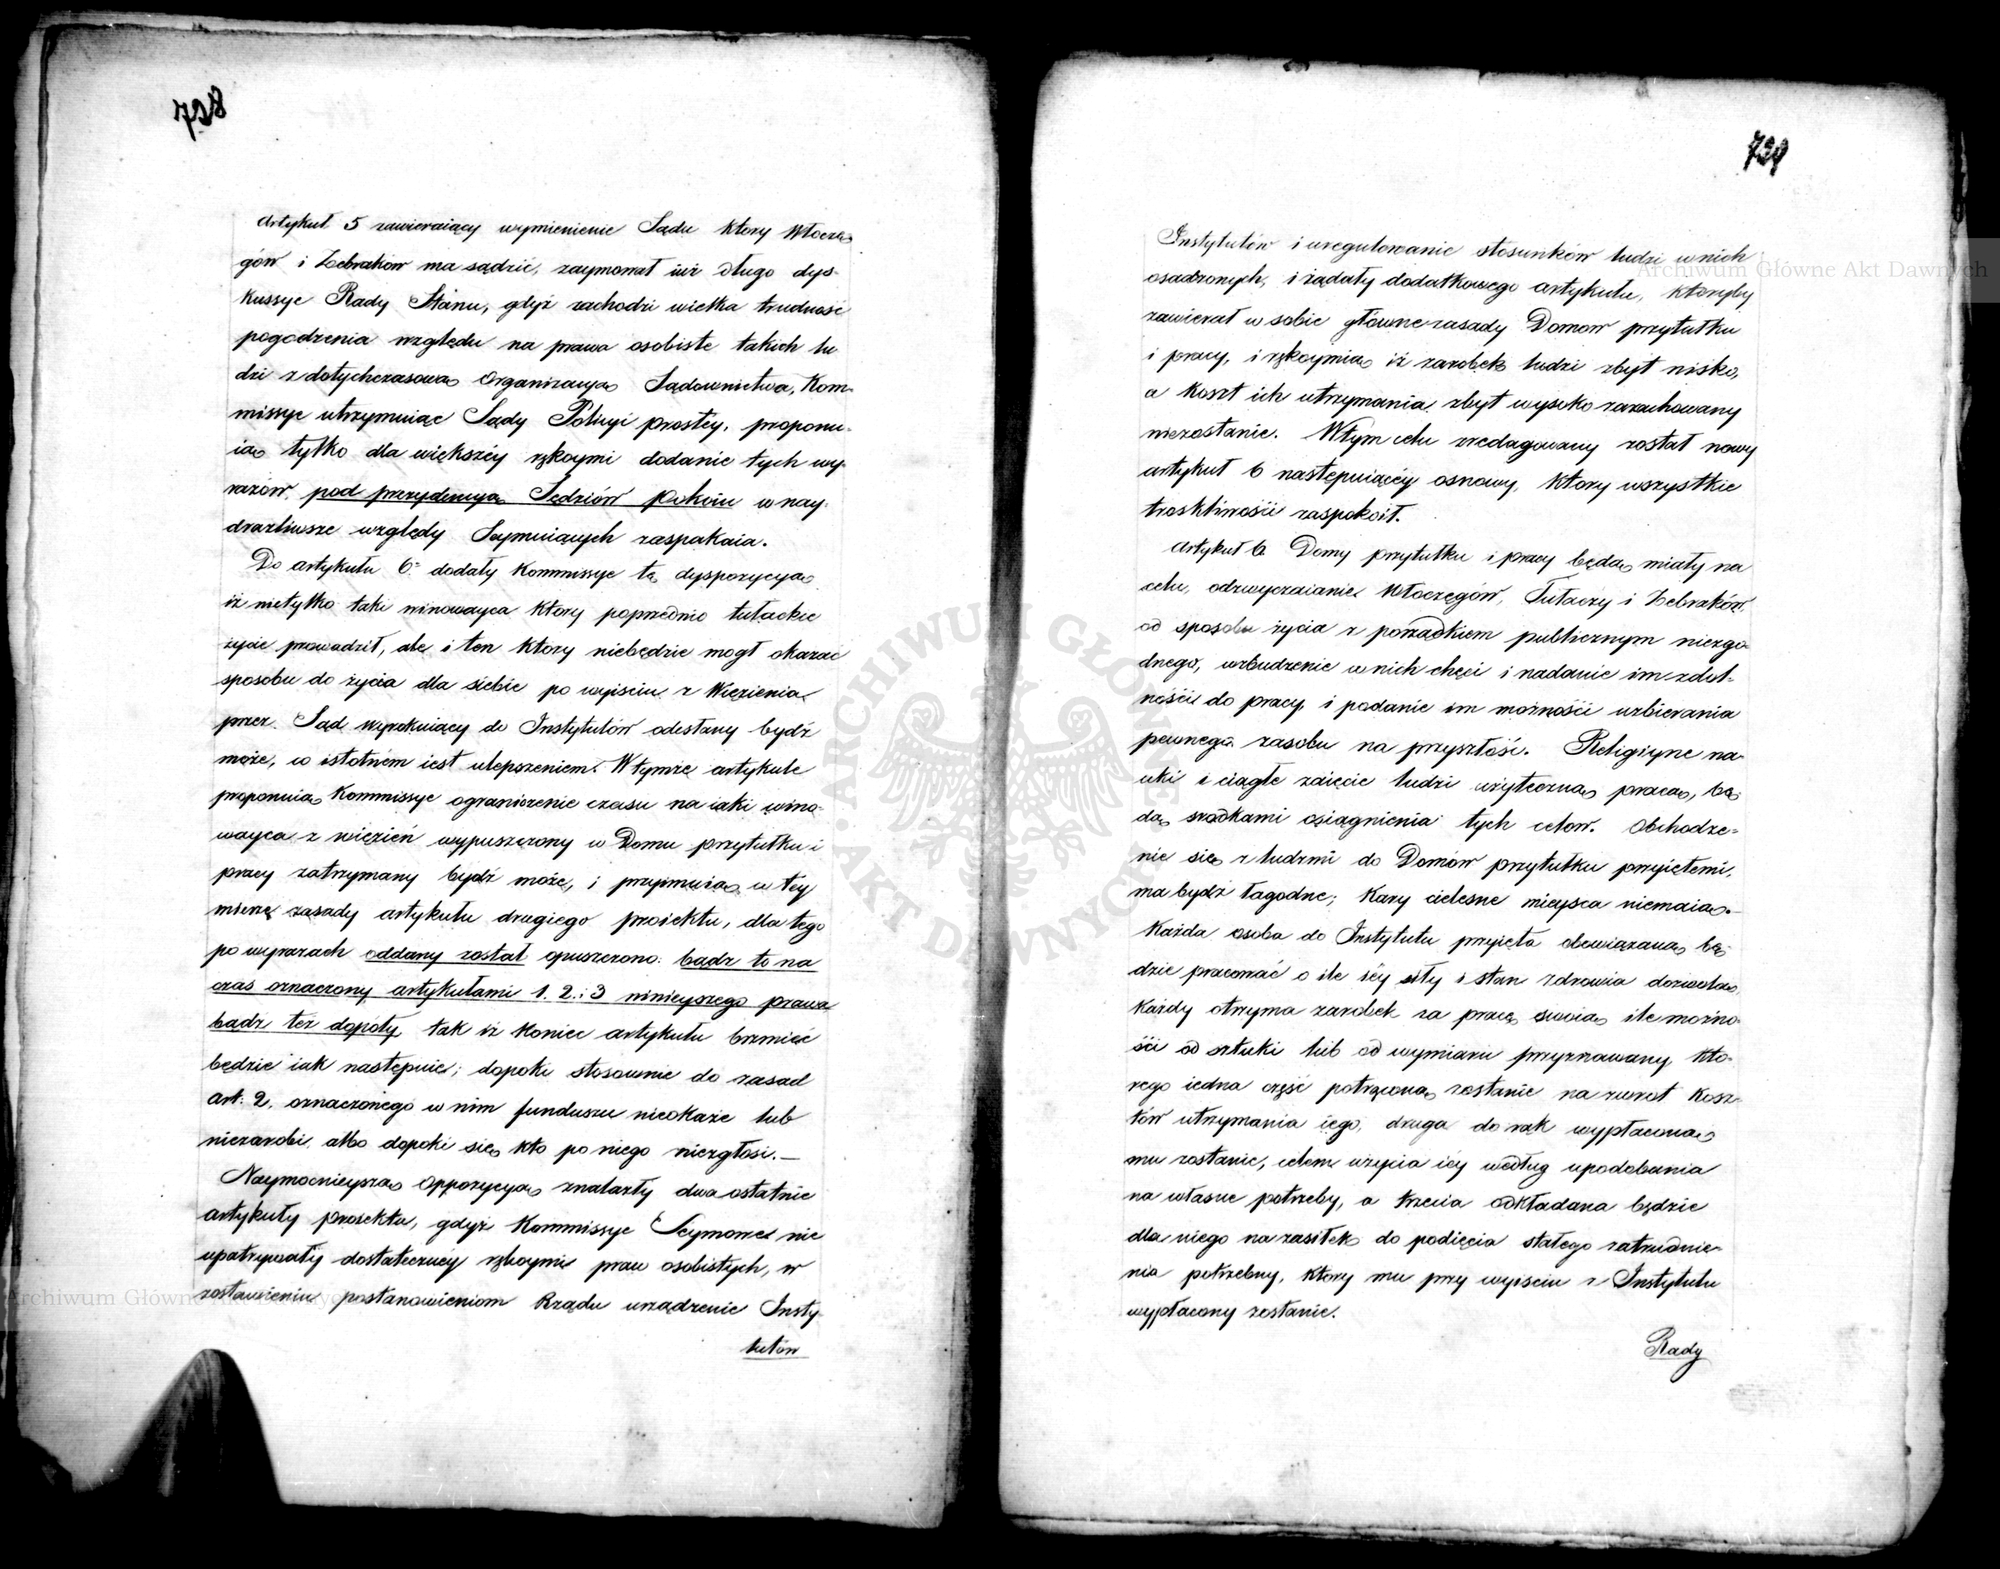 728
Artykuł 5 zawieraiący wymienienie Sądu który Włoczę
gów i Żebraków ma sądzić, zaymował iuż długo dys-
kussye Rady Stanu, gdyż zachodzi wielka trudność
pogodzenia względu na prawa osobiste takich lu
dzi z dotychczasową Organizacyą Sądownictwa, Kom-
missye utrzymuiąc Sądy Policyi prostéy, proponu-
ią tylko dla większéy rękoymi dodanie tych wy-
razów, pod prezydencyą Sędziów Pokoiu w nay-
drażliwsze względy Seymuiących zaspakaia.
Do artykułu 6º dodały Kommissye tę dyspozycyą
iż nietylko taki winowayca który poprzednio tułackie
życie prowadził, ale i ten ktory niebędzie mogł okazać
sposobu do życia dla siebie po wyiściu z Więzienia
przez Sąd wyrokuiący do Instytutów odesłany bydź
może, co istotném iest ulepszeniem. W tymże artykule
proponuią Kommissye ograniczenie czasu na iaki wino-
wayca z więzień wypuszczony w Domu przytułku i
pracy zatrzymany bydź może, i przyimuią w tey
mierze zasady artykułu drugiego proiektu, dla tego
po wyrazach oddany został opuszczono: bądz to na
czas oznaczony artykułami 1. 2. i 3 ninieyszego prawa
bądz też dopoty tak iż koniec artykułu brzmieć
będzie iak następuie; dopoki stosownie do zasad
art: 2. oznaczonego w nim funduszu nieokaże lub
niezarobi, albo dopoki się kto po niego niezgłosi. —
Naymocnieyszą Oppozycyą znalazły dwa ostatnie
artykuły proiektu, gdyż Kommissye Seymowe nie
upatrywały dostateczney rękoymi praw osobistych, w
zostawieniu postanowieniom Rządu urządzenie Insty-
tutów
729
Instytutów i uregulowanie stosunków ludzi w nich
osadzonych, i żądały dodatkowego artykułu, któryby
zawierał w sobie główne zasady Domow przytułku
i pracy, i rękoymią iż zarobek ludzi zbyt nisko,
a koszt ich utrzymania zbyt wysoko zarachowany
niezostanie. W tym celu zredagowany został nowy
artykuł 6 następuiącéy osnowy, ktory wszystkie
troskliwości zaspokoił.
Artykuł 6. Domy przytułku i pracy będą miały na
celu, odzwyczaianie Włoczęgów, Tułaczy i Żebraków
od sposobu życia z porządkiem publicznym niezgo
dnego, wzbudzenie w nich chęci i nadanie im zdol-
ności do pracy i podanie im możności uzbierania
pewnego zasobu na przyszłość. Religiyne na-
uki i ciągłe zaięcie ludzi użyteczną pracą, bę-
dą środkami osiągnienia tych celow. Obchodze-
nie się z ludzmi do Domów przytułku przyiętemi,
ma bydź łagodne; Kary cielesne mieysca niemaią.—
Każda osoba do Instytutu przyięta obowiązaną bę-
dzie pracować o ile iéy siły i stan zdrowia dozwolą,
każdy otrzyma zarobek za pracę swoią ile możno-
ści od sztuki lub od wymiaru przyznawany kto-
rego iedna część potrąconą zostanie na zwrot kosz-
tów utrzymania iego, druga do rąk wypłaconą
mu zostanie, celem użycia iéy według upodobania
na własne potrzeby, a trzecia odkładana będzie
dla niego na zasiłek do podięcia stałego zatrudnie-
nia potrzebny, ktory mu przy wyiściu z Instytutu
wypłacony zostanie.
Rady
Archiwum Główne Akt Dawnych
ARCHIWUM GŁÓWNE AKT DAWNYCH